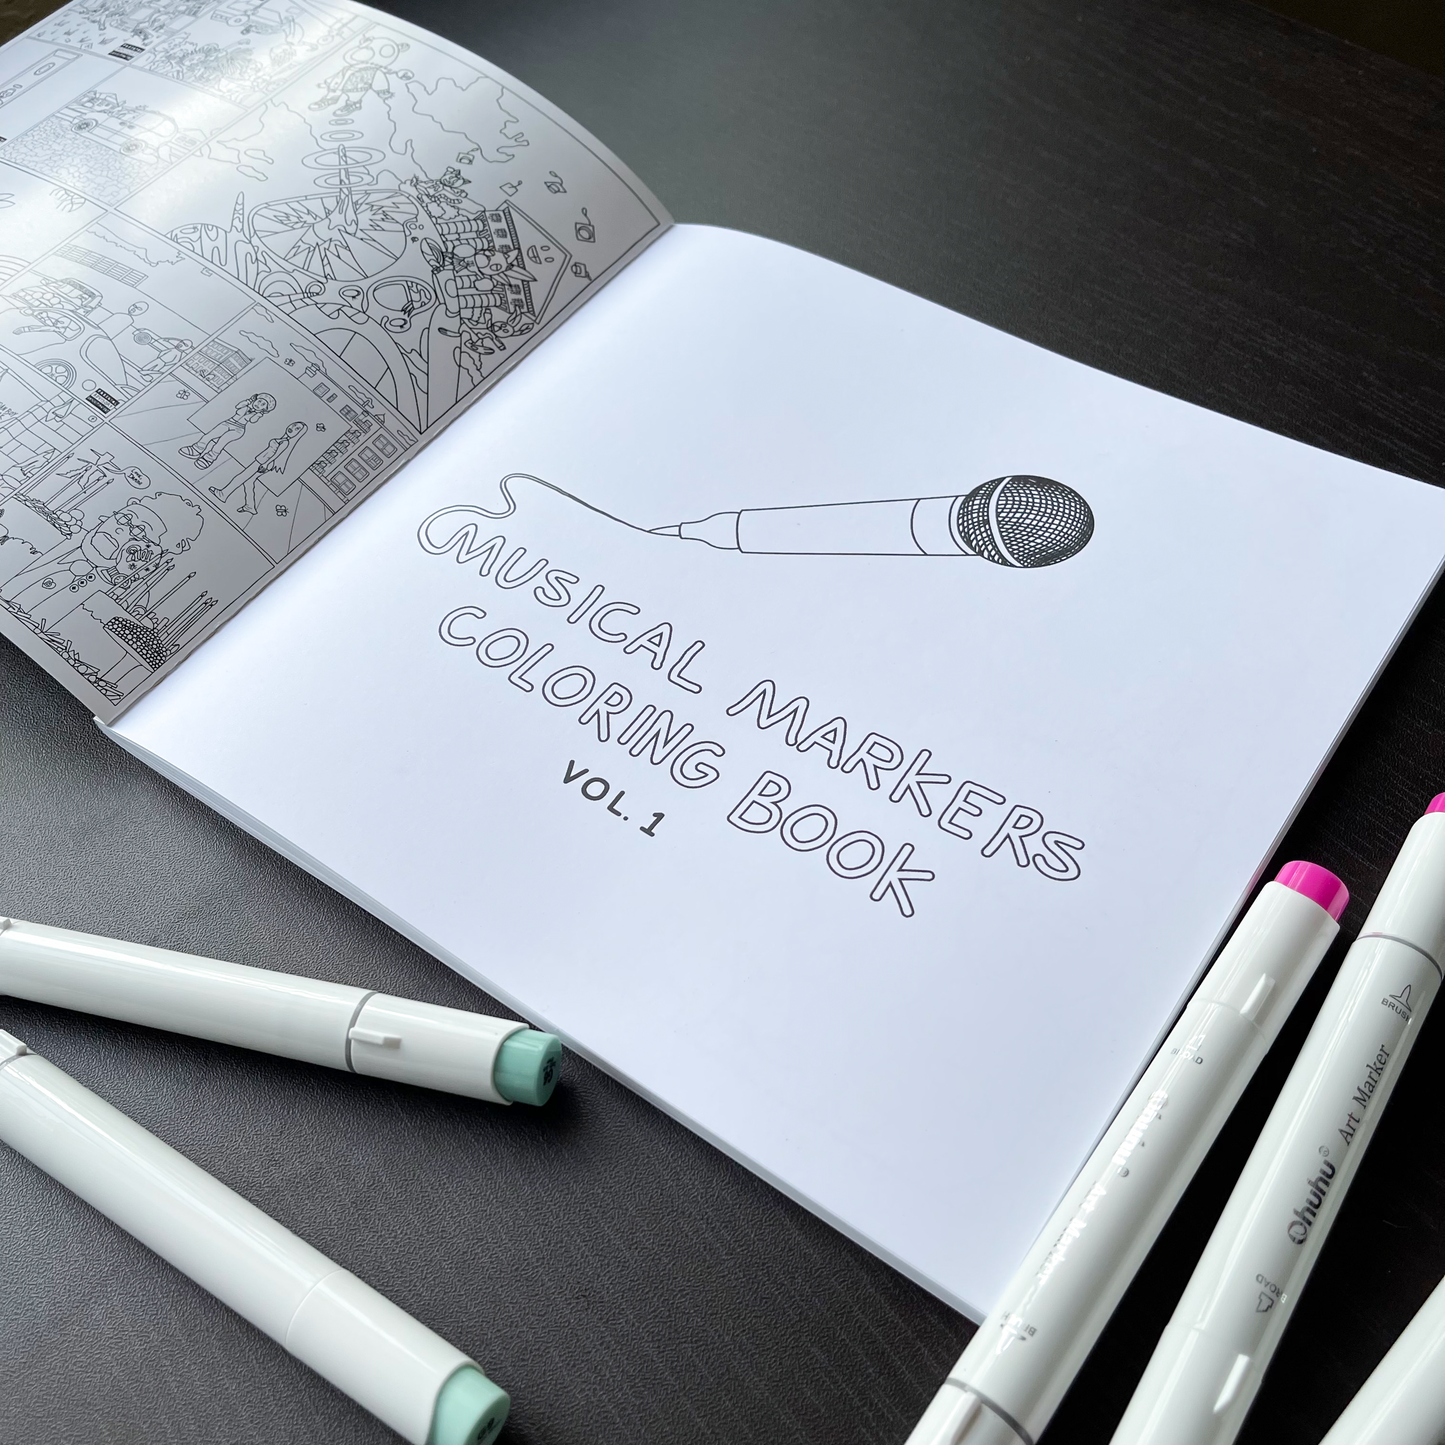 MUSICAL MARKERS
COLORING BOOK
VOL. 1
BRUSH
Ohuhu® Art Marker
BROAD
Art Marker